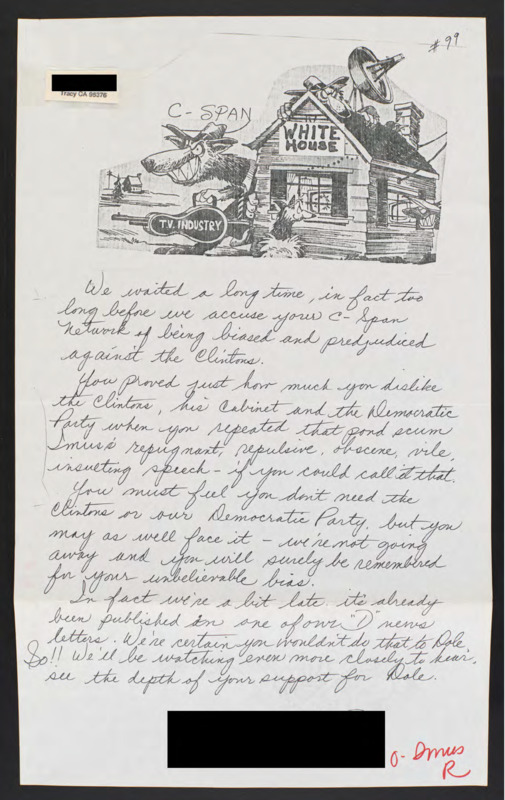 #99
Tracy CA 95376
C-SPAN
WHITE
HOUSE
T.V. INDUSTRY
We waited a long time, in fact too
long before we accuse your C-Span
Network of being biased and predjudiced
against the Clintons.
You proved just how much you dislike
the Clintons, his Cabinet and the Democratic
Party when you repeated that pond scum
Imus's repugnant, repulsive, obscene, vile,
insulting speech - if you could call it that.
You must feel you don't need the
Clintons or our Democratic Party, but you
may as well face it - we're not going
away and you will surely be remembered
for your unbelievable bias.
In fact we're a bit late. it's already
been published in one of our "D" news
letters. We're certain you wouldn't do that to Dole.
So!! We'll be watching even more closely to hear,
see the depth of your support for Dole.
O- Imus
R